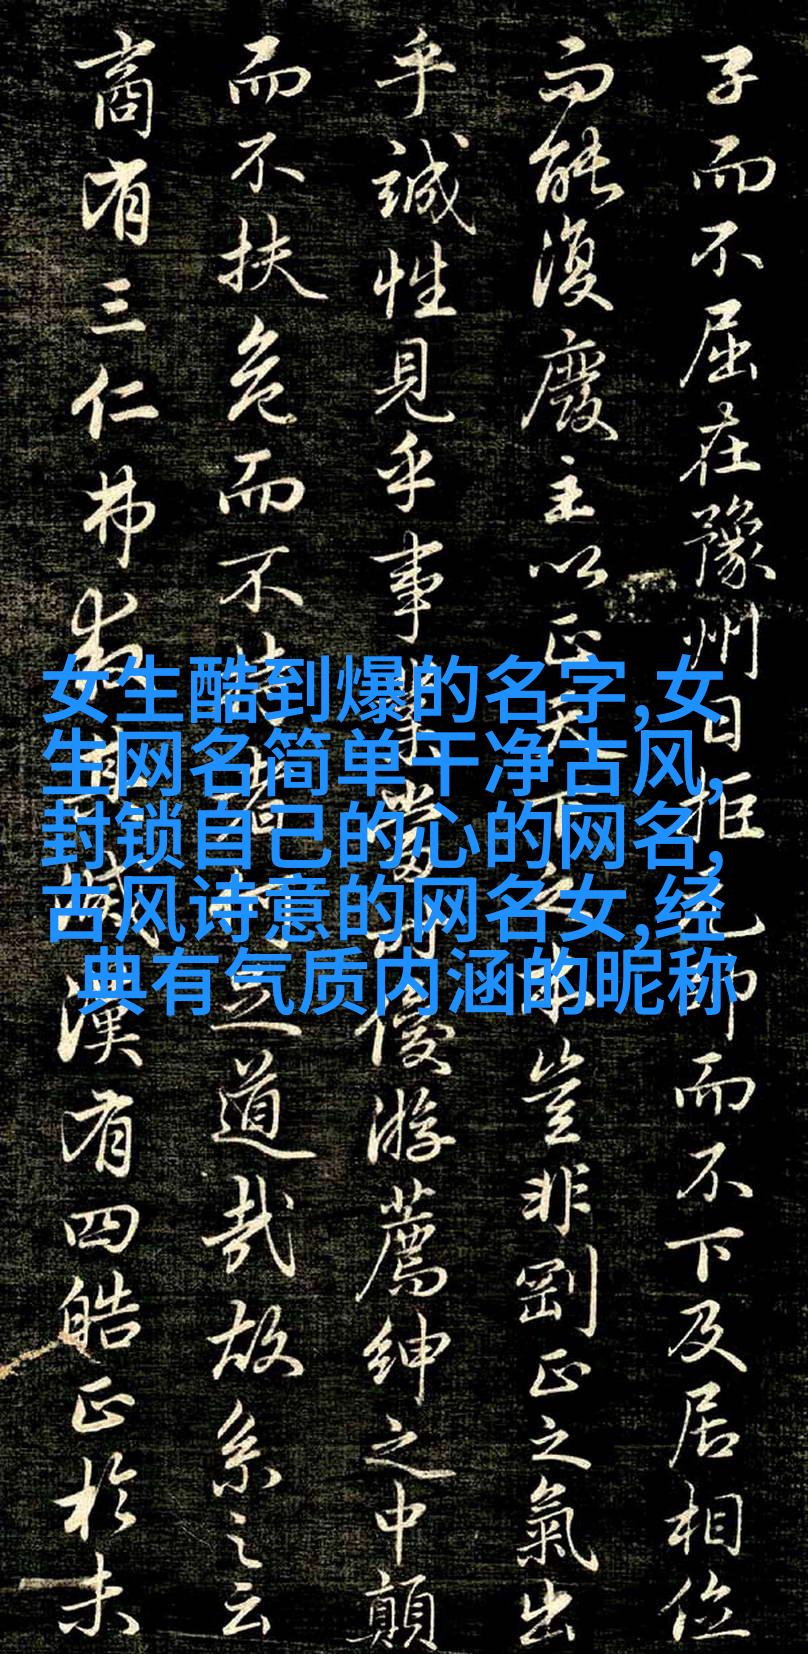 子而不屈在豫州日拒元帥而不下及居相位
而能復廢主以正天下之本豈非剛正之氣出
乎誠性見乎事業當時優游薦紳之中顛
而不扶危而不持 道哉故系之云
商有三仁弗救其滅漢有四皓正於未
女生酷到爆的名字,女
生网名简单干净古风,
封锁自己的心的网名,
古风诗意的网名女,经
典有气质内涵的昵称